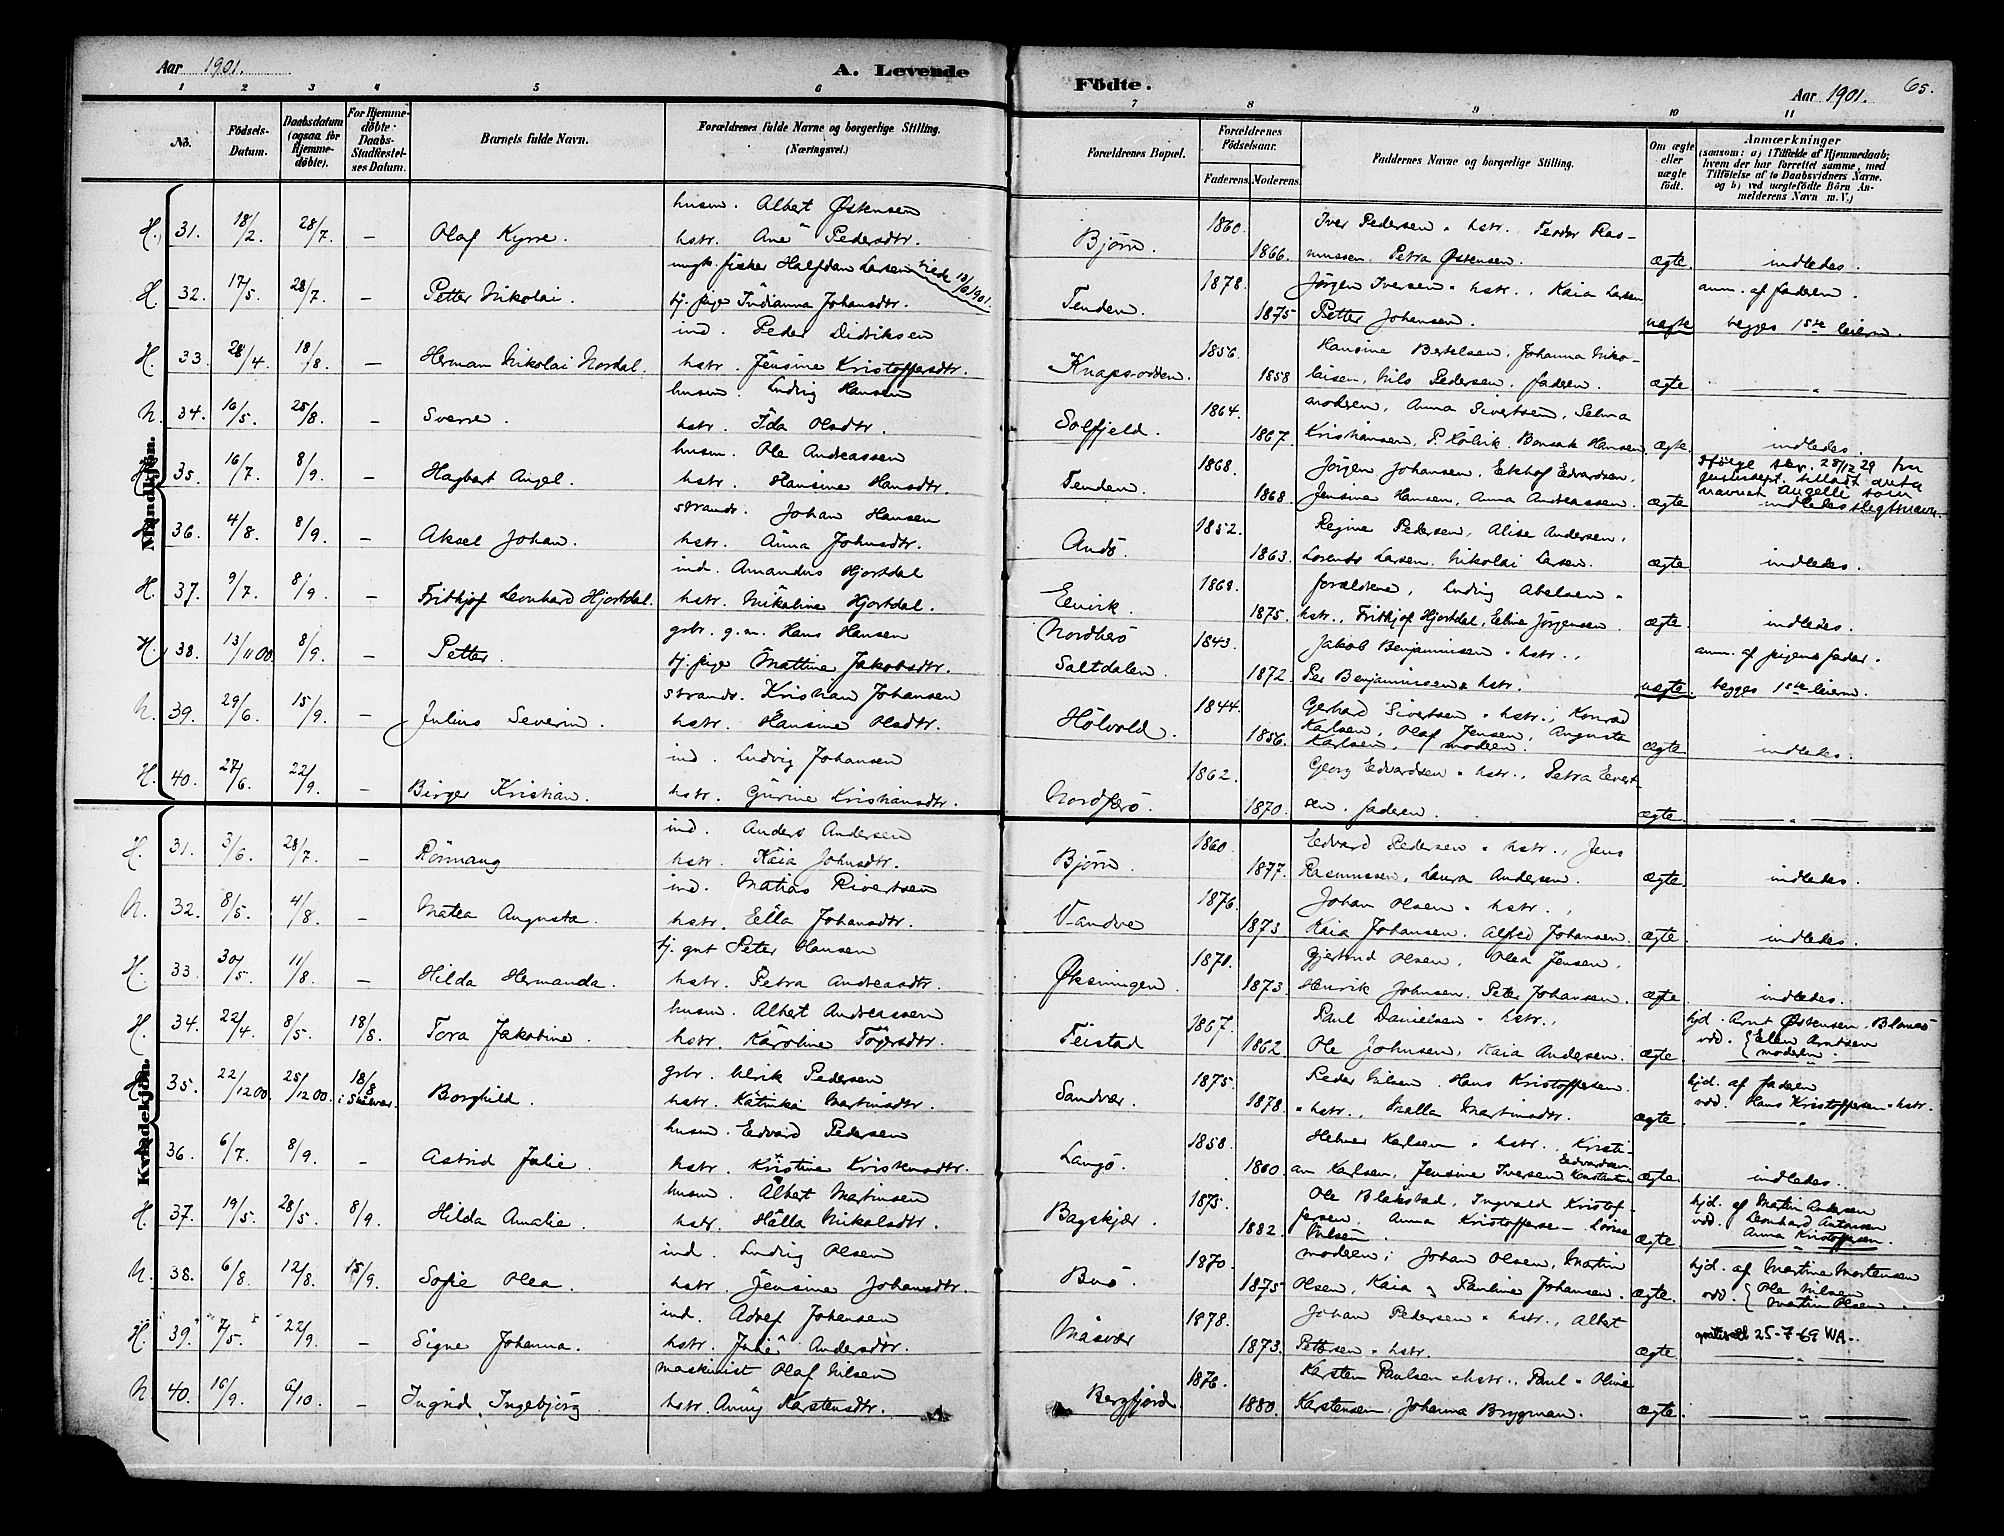 Aar 1901.
A. Levende
Födte.
Aar 1901.
65.
1 2 3 4 5 6 7 8 9 10 11
No. Födsels-Datum. Daabsdatum (ogsaa for Hjemme-döbte). For Hjemme-döbte: Daabs-Stadfæstel-ses Datum. Barnets fulde Navn. Forældrenes fulde Navne og borgerlige Stilling. (Næringsvei.)
Forældrenes Bopæl. Forældrenes Födselsaar. Faderens. Moderens. Faddernes Navne og borgerlige Stilling. Om ægte eller uægte födt. Anmærkninger (saasom: a) i Tilfælde af Hjemmedaab; hvem der har forrettet samme, med Tilföielse af to Daabsvidners Navne. og b) ved uægtefödte Börn An-melderens Navn m. V.)
Mandkjön.
husm. Albert Østensen 1860. Iver Pedersen " hstr. Teodor Ras-
H. 31. 18/2. 28/7. – Olaf Kyrre. hstr. Ane Pedersdtr. Bjørn. 1866. mussen, Petra Østensen. ægte. indledes.
ungk. fisker Halfdan Larsen viede 12/6 1901. 1878. Jörgen Iversen " hstr., Kaia Larsen anm. af faderen.
H. 32. 17/5. 28/7. – Petter Nikolai. tj. pige Indianna Johansdtr. Tenden. 1875 Petter Johansen. uægte begges 1ste leierm.
ind. Peder Didriksen 1856. Hansine Bertelsen, Johanna Niko-
H. 33. 28/4 18/8. – Herman Nikolai Nordal. hstr. Jensine Kristoffersdtr. Knapsodden. 1858 laisen, Nils Pedersen, faderen. ægte "
husm. Ludvig Hansen 1864. moderen, Anna Sivertsen, Selma
N. 34. 16/5. 25/8. – Sverre. hstr. Ida Olsdtr. Solfjeld. 1867. Kristiansen, Hansen ægte. indledes.
husm. Ole Andreassen 1868. Jörgen Johansen, Edvardsen,
35. 16/7. 8/9. – Hagbart Angel. hstr. Hansine Hansdtr. Tenden. 1868. Jensine Hansen, Anna Andreassen. ægte indledes
Ifölge skr. 28/12 29 fra
justisdept. tilladt
navnet Angell som
slegtsnavn.
strands. Johan Hansen 1852. Regine Pedersen, Alise Andersen,
36. 4/8. 8/9. – Aksel Johan. hstr. Anna Johnsdtr. Andö. 1863. Lorents Larsen, Nikolai Larsen. ægte indledes.
ind. Amandus Hjortdal 1868. forældrene, Ludvig Abelsen "
H. 37. 9/7. 8/9. – Fridthjof Leonhard Hjortdal. hstr. Nikoline Hjortdal. 1875. hstr., Fritthjof Hjortdal, Eline Jörgensen. ægte indledes.
gsbr. g.m. Hans Hansen Nordherö 1843. Jakob Benjaminsen " hstr., anm. af pigens fader.
H. 38. 13/11 00. 8/9. – Petter. tj. pige Mattine Jakobsdtr. Saltdalen. 1872. Per Benjaminsen " hstr. uægte. begges 1ste leierm.
strands. Kristian Johansen 1844. Gerhard Sivertsen " hstr., Konrad
N. 39. 29/6. 15/9. – Julius Severin. hstr. Hansine Olsdtr. Holvold. 1856. Karlsen, Olaf Jensen, Augusta ægte indledes.
Karlsen, moderen.
ind. Ludvig Johansen 1862. Georg Edvardsen " hstr., Petra Evert-
H. 40. 27/6. 22/9. – Birger Kristian. hstr. Gurine Kristiansdtr. 1870. sen, faderen. ægte. "
Kvindekjön.
ind. Anders Andersen 1860. Edvard Pedersen " hstr., Jens
H. 31. 3/6. 28/7. – Rönnaug hstr. Kaia Johnsdtr. Bjørn. 1877. Rasmussen, Laura Andersen. ægte. indledes.
ind. Matias Sivertsen 1876. Johan Olsen " hstr.,
N. 32. 8/5. 4/8. – Matea Augusta. hstr. Ella Johansdtr. Vandve 1873. Kaia Johansen, Alfred Johansen. ægte. indledes.
tj. gut Peter Hansen 1871. Gjertrud Olsen, Olea Jensen,
H. 33. 30/5. 11/8. – Hilda Hermanda. hstr. Petra Andreasdtr. Øksningen. 1873. Henrik Johnsen, Peter Johansen. ægte. indledes.
husm. Albert Andreassen 1867. Paul Danielsen " hstr., hjd. Arnt Østensen, Blomsö
H. 34. 22/4. 8/5. 18/8. Tora Jakobine. hstr. Karoline Tögersdtr. Feistad 1862. Ole Johnsen, Kaia Andersen. ægte. vdd. Ellen Arntsen
moderen. "
gsbr. Ulrik Pedersen 1875. Peder Nilsen, Hans Kristoffersen, hjd. af faderen
35. 22/12 00. 25/12 00. 18/8 i Skålvær. Borghild. hstr. Katinka Martinsdtr. Sandvær. 1878. " hstr., Malla Martinsdtr. ægte. vdd. Hans Kristoffersen " hstr.
husm. Edvard Pedersen 1858. Helmer Karlsen " hstr., Kristi-
36. 6/7. 8/9. – Astrid Julie. hstr. Kristine Kristensdtr. Langö. 1860 an Karlsen, Jensine Iversen, Edvardsen ægte. indledes.
husm. Albert Martinsen 1875. Ole Blakstad, Ingvald Kristof- hjd. af Martin Andersen
H. 37. 19/5. 28/5. 8/9. Hilda Amalie. hstr. Halla Nikolaidtr. Bagskjær. 1882 fersen, Anna Kristoffersen, Lovise vdd. Leonhard Antonsen
Nilsen. ægte. Anna Kristoffersen.
ind. Ludvig Olsen 1870. moderen, Johan Olsen, Martin hjd. af Martine Mortensen
N. 38. 6/8. 12/8. 15/9. Sofie Olea. hstr. Jensine Johansdtr. Buö. 1875 Olsen, Kaia og Pauline Johansen. ægte. vdd. Ole Nilsen
Martin Olsen.
ind. Adolf Johansen 1878. Johan Pedersen " hstr., Albert
H. 39. 7/5. 22/9. – Signe Johanna. hstr. Julie Andersdtr. Måsvær 1873. Pettersen " hstr. ægte. 25-7-69 WA.
maskinist Olaf Nilsen 1876. Karsten Paulsen " hstr., Paul " Oline
N. 40. 16/9. 6/10. – Ingrid Ingebjörg hstr. Anny Karstensdtr. Bergfjord. 1880. Karstensen, Johanna Brygman. ægte. "